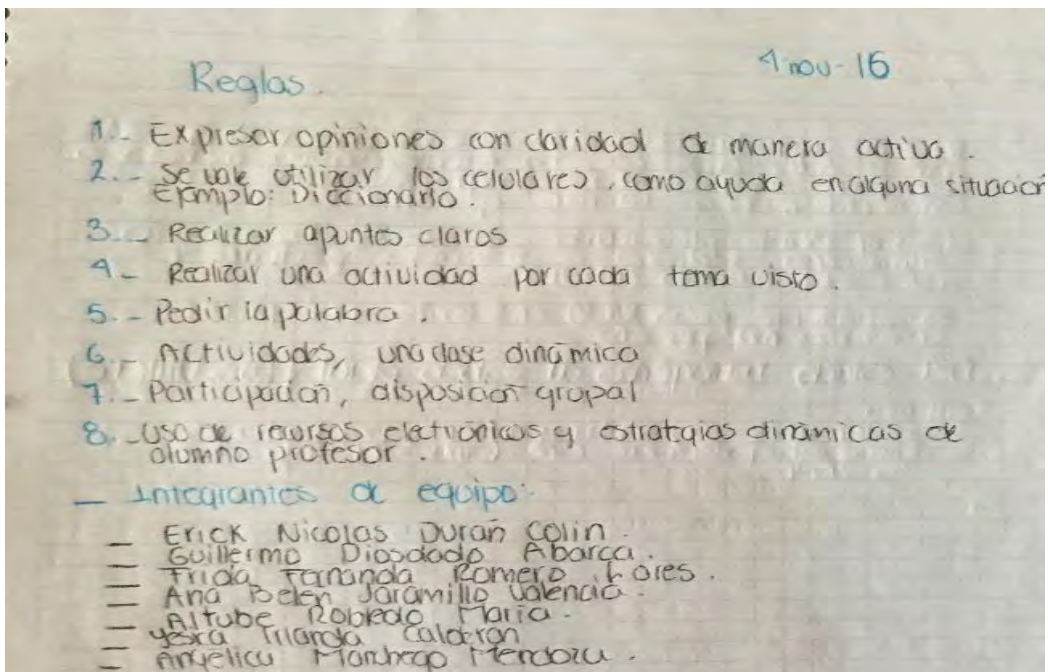 4 nov-16
Reglas.
1.- Expresar opiniones con claridad de manera activa.
2.- Se vale utilizar los celulares, como ayuda en alguna situación
Ejemplo: Diccionario.
3.- Realizar apuntes claros
4.- Realizar una actividad por cada tema visto.
5.- Pedir la palabra.
6.- Actividades, una clase dinámica
7.- Participación, disposición grupal
8.- Uso de recursos eletrónicos y estrategias dinámicas de
alumno profesor.
- Integrantes de equipo:
- Erick Nicolas Durán Colin.
- Guillermo Diosdado Abarca.
- Frida Fernanda Romero
- Ana Belen Jaramillo Valencia.
- Altube Robledo Maria.
- Calderon
- Angelica Mendoza.